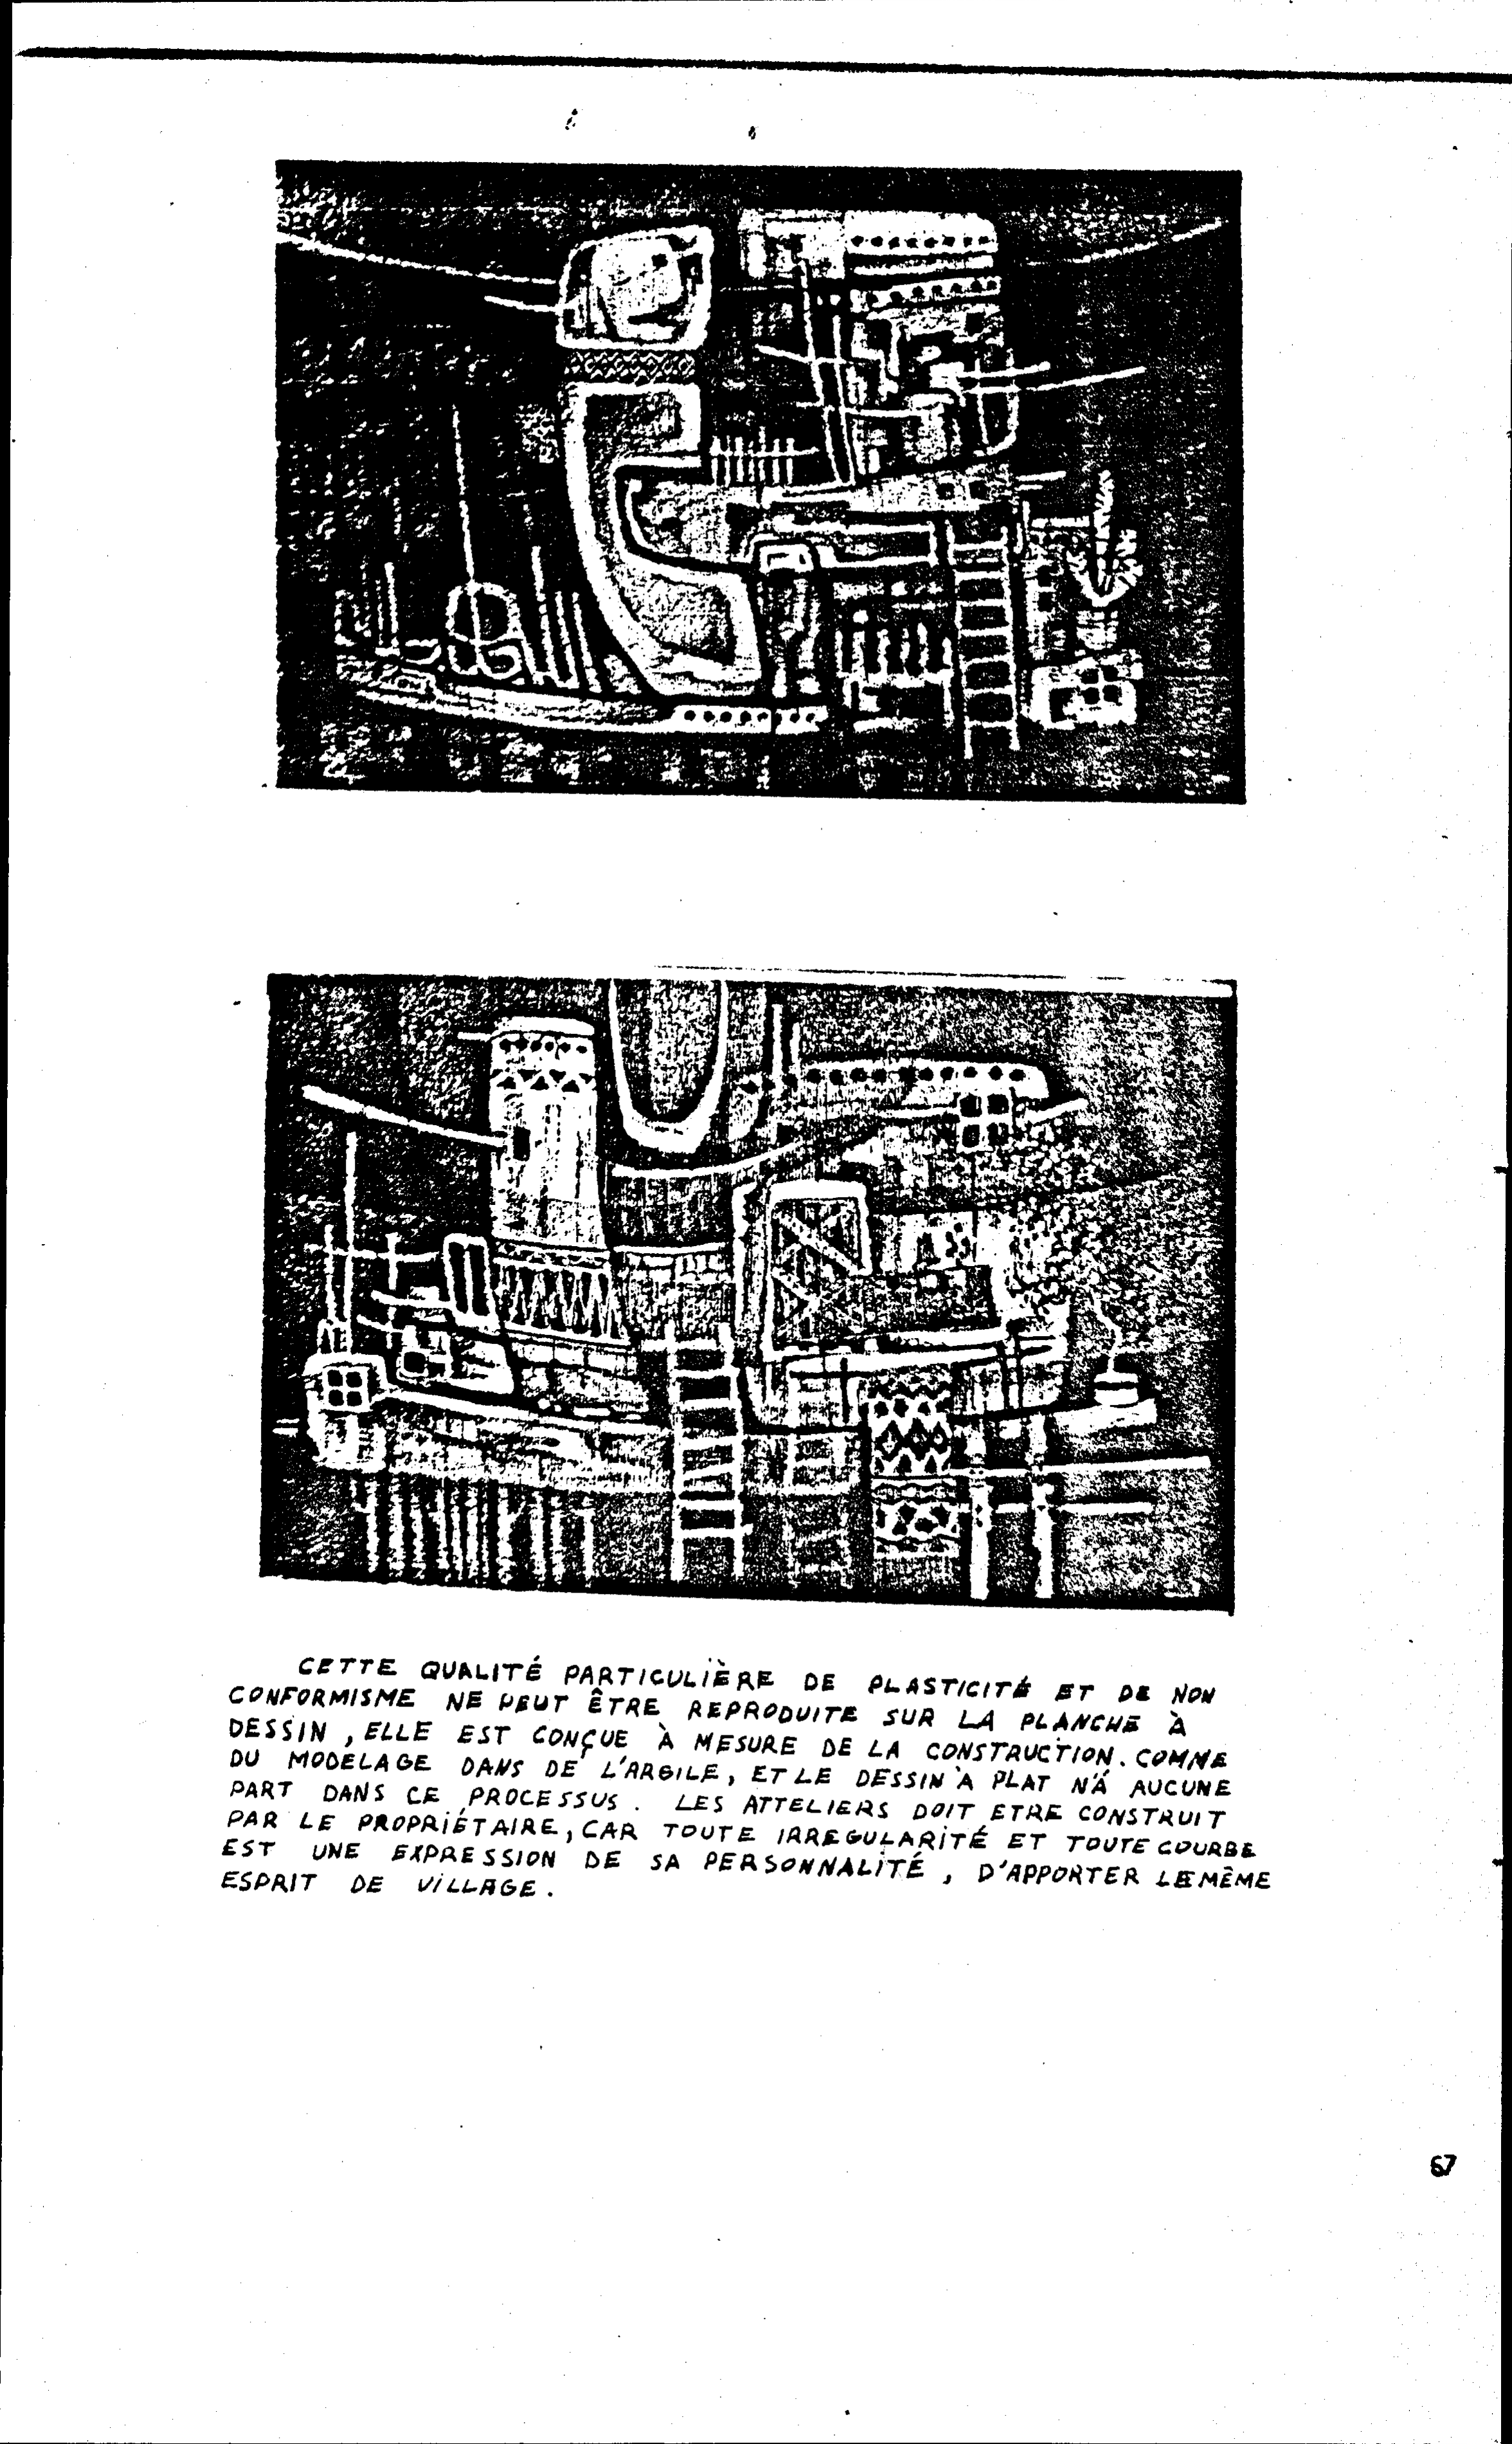 CETTE QUALITÉ PARTICULIÈRE DE PLASTICITÉ ET DE NON
CONFORMISME NE PEUT ÊTRE REPRODUITE SUR LA PLANCHE À
DESSIN, ELLE EST CONÇUE À MESURE DE LA CONSTRUCTION. COMME
DU MODELAGE DANS DE L'ARGILE, ET LE DESSIN À PLAT N'A AUCUNE
PART DANS CE PROCESSUS. LES ATTELIERS DOIT ETRE CONSTRUIT
PAR LE PROPRIÉTAIRE, CAR TOUTE IRREGULARITÉ ET TOUTE COURBE
EST UNE EXPRESSION DE SA PERSONNALITÉ, D'APPORTER LE MÊME
ESPRIT DE VILLAGE.
67